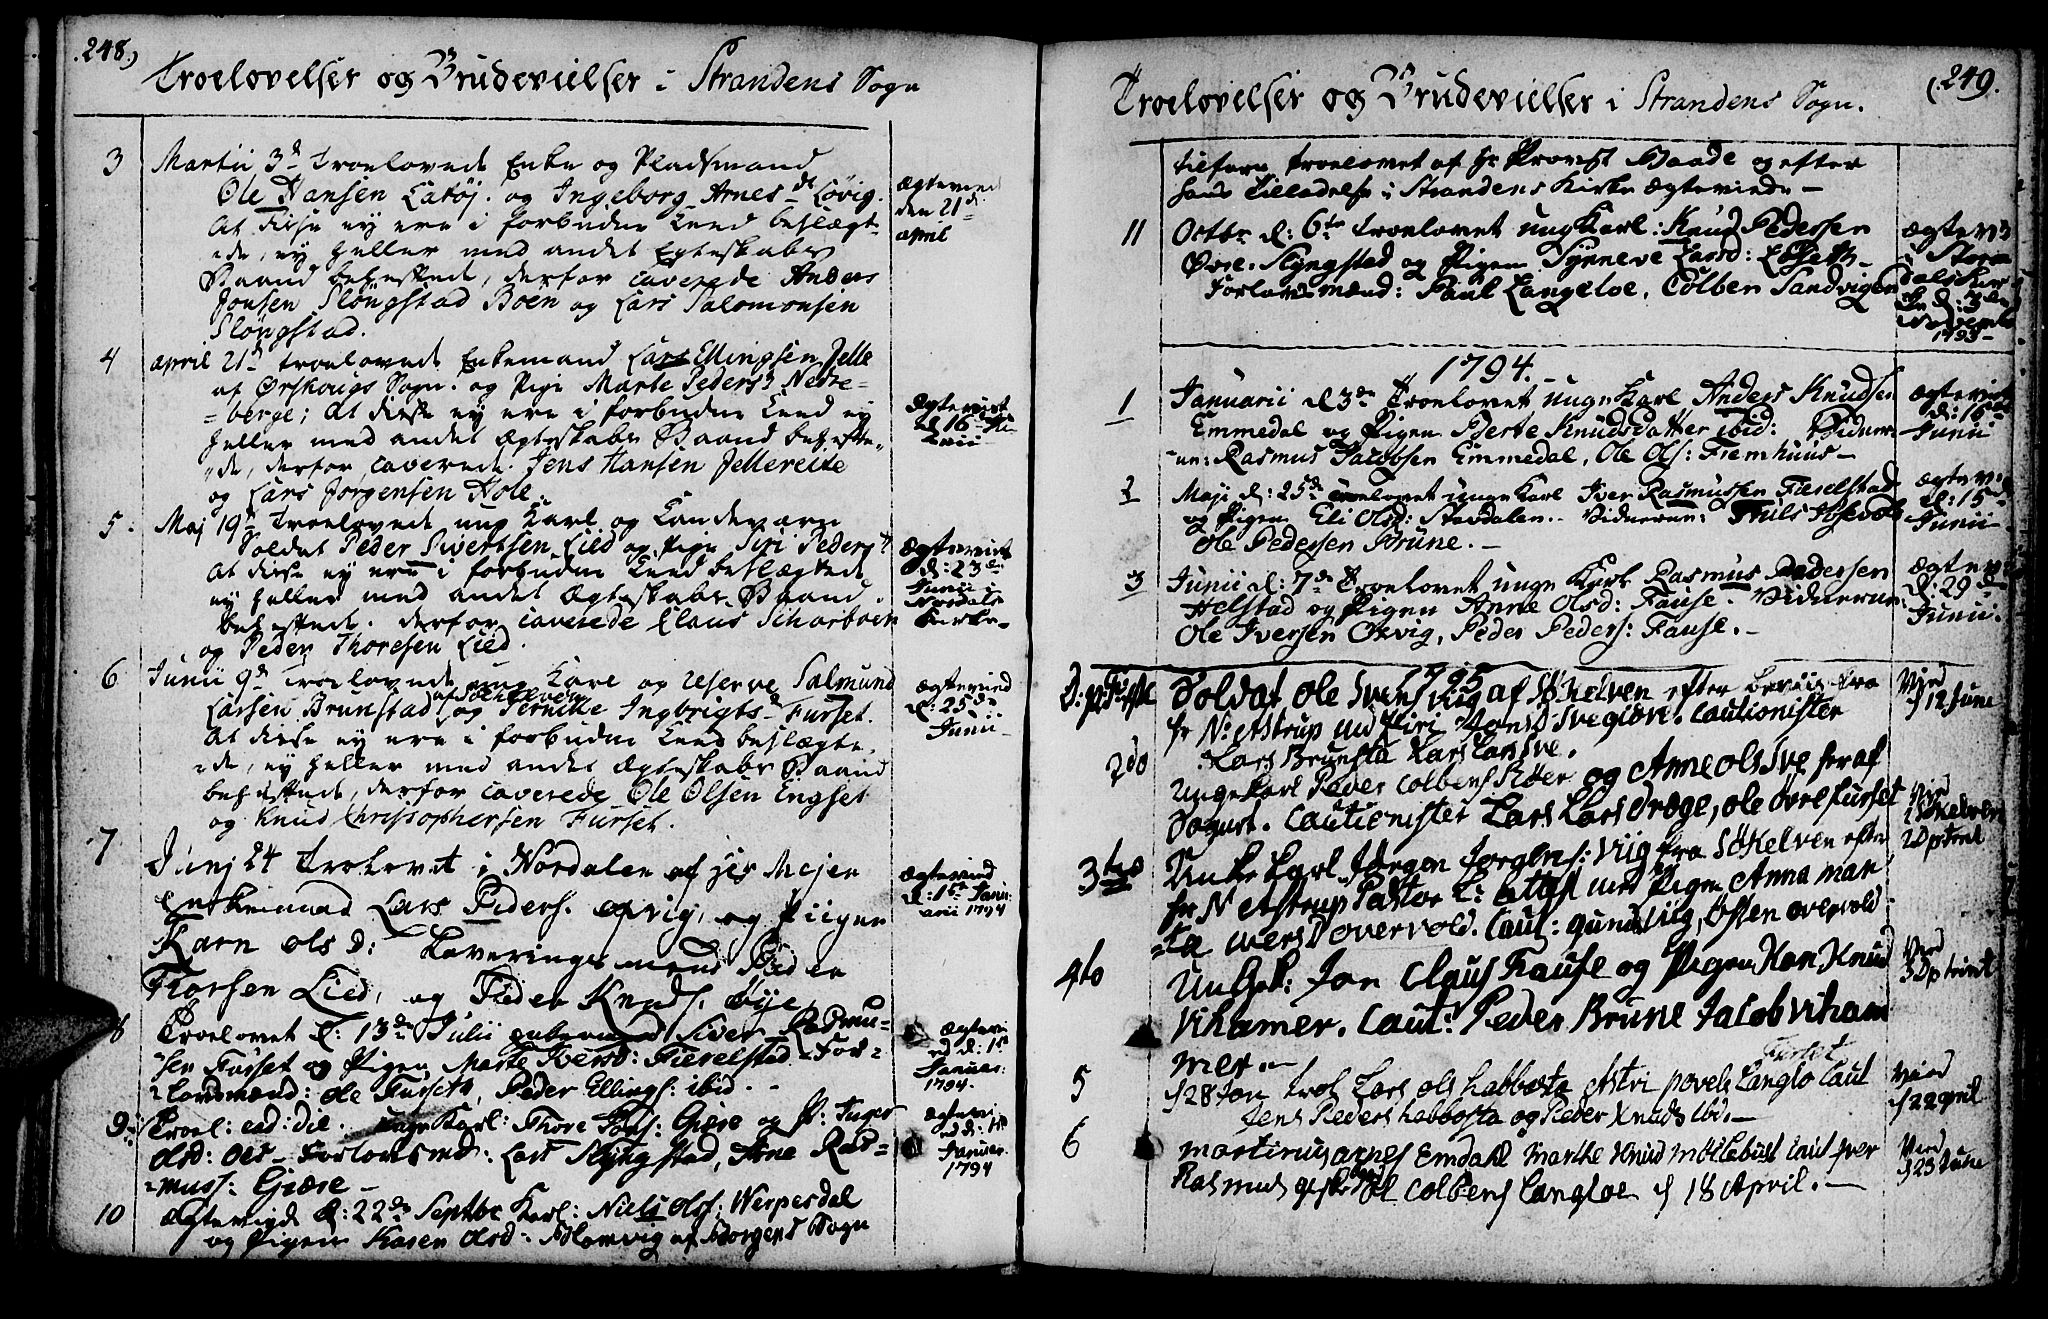 .248.)
Troelovelser og Brudevielser i Strandens Sogn
3 Martii 3d troelovede Enke og Pladsmand
Ole Hansen Latøj. og Ingeborg Arnes dt Løvig.
At disse ej ere i forbudne Leed beslægt-
ede, ej heller med andet Egteskabs
Baand behæftede, derfor caverede Anders
Jonsen Sløngstad Boen og Lars Salomonsen
Sløngstad.
Ægteviede
den 21d
april
4 april 21d troelovede Enkemand Lars Ellingsen Jelle
af Ørskougs Sogn. og Pige Marte Peders D Nedre-
=berge; At disse ej ere i forbudne Leed ej
heller med andet Ægteskabs Baand behæfte-
de, derfor caverede. Jens Hansen Jellereite
og Lars Jørgensen Hole.
Ægteviet
d 16
Junii
5. Maj 19d troelovede ung Karl og Landeværn
Soldat Peder Sivertsen Lied og Pige Siri Peders
At disse ej ere i forbudne Leed beslægtede
ej heller med andet Ægteskabs Baand
behæftede. derfor caverede Claus Scharboen
og Peder Thoresen Lied.
Ægteviet
d: 23de
Junii
Nordals
Kirke
6 Junii 9d troelovede ung Karl og reserve Salmund
Larsen Brunstad af Søchelven og Pernille Ingbrigts D Furset.
At disse ej ere i forbudne Leed beslægte-
ede, ej heller med andet Ægteskabs Baand
behæftede, derfor caverede Ole Olsen Engset
og Knud Christophersen Furset.
Ægteviede
d: 25de
Junii
7 Junj 24 trolovet i Nordalen af Hr Mejer
Enkemand Lars Peders. Opvig, og Piigen
Karn Ols D: Caverings mend Peder
Thorsen Lied, og Peder Knuds. Øye.
Ægteviede
d: 1ste Janu-
arii 1794
8 Troelovet d: 13de Julii Enkemand Siver Rasmu-
sen Furset og Pigen Marte Iversd: Fieselstad For-
lovsmænd: Ole Furseth, Peder Ellings: ibid.
Ægtevi
ed d: 1ste
Januar:
1794.
9: Troel: ead: die. unge Karl: Thore Jons: Giære og P: Inger
Olsd: Ols - Forlovsmd: Lars Slyngstad, Arne Ras-
muss: Giære -
Ægtevi
ed d: 1ste
Januar.
1794
10 Ægteviede d: 22de Septbr Karl: Niels Olss: Werpesdal
og Pigen Karen Olsd: Blomvig af Borgens Sogn
(.249.
Troelovelser og Brudevielser i Strandens Sogn.
tilforn troelovet af Hr Provst Baade og efter
hans Tilladelse i Strandens Kirke Ægteviede -
11 Octbr d: 6te troelovet unge Karl: Knud Pedersen
Øvre Slyngstad og Pigen Synneve Larsd: Løseth -
Forlovsmænd: Paul Langeloe, Colben Sandvigen
Ægtevi3
i Stor
dals Kir
ke d: 3de
Novembr
1793 -
1794.
1 Januarii d 3de Troelovet unge Karl Anders Knudsen
Emmedal og Pigen Berte Knudsdatter ibid: Vidner-
ne: Rasmus Jacobsen Emmedal, Ole Ols: Fremhuus -
Ægteviet
d: 16
Junii
2 Maji d: 25de troelovet unge Karl Iver Rasmussen Fieselstad
og Pigen Eli Olsd: Stavdalen. Vidnerne:
Ole Pedersen Brune. -
Ægtevi
d: 15
Junii
3 Junii d: 7de Troelovet unge Karl Rasmus Pedersen
Helstad og Pigen Anne Olsd: Fause. Vidnerne:
Ole Iversen Opvig, Peder Peders: Fause. -
Ægtevi
d: 29
Junii.
1795
Soldat Ole Svens Viig af Søkelven efter beviis fra
Hr N: Astrup med Piri Cautionister
Lars Brunsta Lars Lars Sve.
Vied
d 12 June
2do Unge Karl Peder Colbens Røer og Anne Ols Sve her af
Sognet. Cautionister Lars Lars Drøge, Ole Øvre Furset
Vied
i Søkelven
2 D p trinit
3tio Unke Karl Jørgen Jørgens: Viig fra Søkelven efter
Hr N Astrup Pastor L: attest med Pigen Anna mar
=ta Ivers D Overvold. Caut: gunder Viig, Østen overvold
4to Ungk: Jon Claus Fause og Pigen Kari Knud
Vihamer. Caut: Peder Brune Jacob viham
mer. -
Vied
3 D p trinit
5 d 28 Jan trol Lars Ols habbosta Astri povels Langlo Furset Caut
Jens Peders habbosta og Peder Knuds ibd. -
Vied
d 22 april
6 martinus arnes Emdahl Marthe Knud Møllebust Caut Iver
Rasmus Ol Colbens Langloe d 18 April. -
Vied
d 23 June